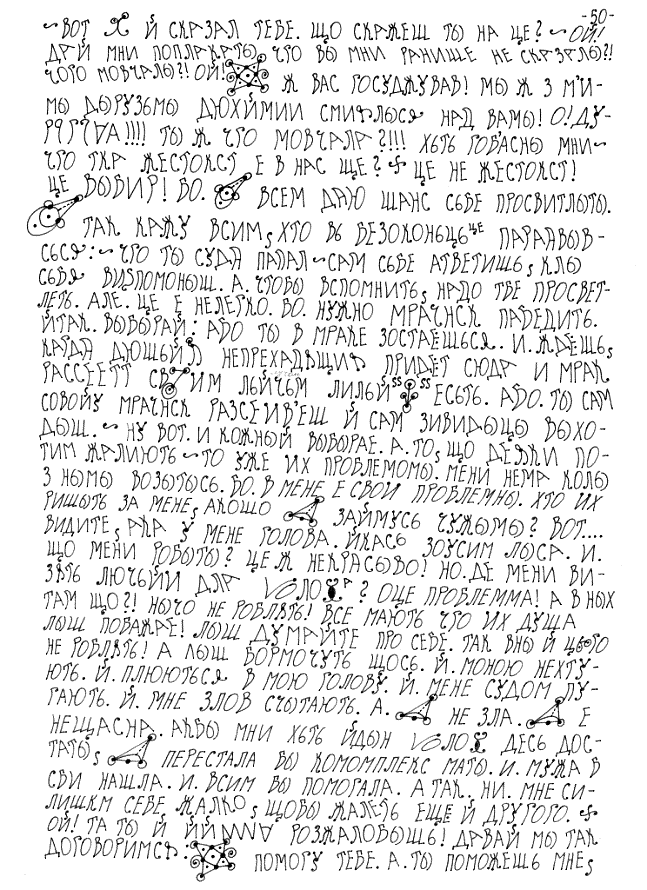 -50-
~ ВОТ Й СКАЗАЛ ТЕБЕ. ЩО СКАЖЕШ ТЫ НА ЦЕ? ~ ОЙ!
ДАЙ МНИ ПОПЛАКАТЫ, ЧТО ВЫ МНИ РАНИЩЕ НЕ СКАЗАЛЫ?!
ЧОГО МОВЧАЛЫ?! ОЙ! Ж ВАС ГОСУДЖУВАВ! МЫ Ж З М'И-
МЫ ДЫРУЗЬМЫ ДЮХЙМИИ СМИЯЛЫСЯ НАД ВАМЫ! О! ДУ-
!!!! ТЫ Ж ЧТО МОВЧАЛА?!!! ХЬТЬ ГОВ'АСНЫ МНИ ~
ЧТО ТКА ЖЕСТОКСТ Е В НАС ЩЕ? ЦЕ НЕ ЖЕСТОКСТ!
ЦЕ ВЫВИР! ВО. ВСЕМ ДАЮ ШАНС СЬВЕ ПРОСВИТЛЫТЫ.
ТАК КАЖУ ВСИМ, ХТО ВЬ БЕЗОКОНЬЦЬЦЕ ПАРАДВЫВ-
СЬСЯ: ~ ЧТО ТЫ СУДА ПАПАЛ ~ САМ СЬБЕ АТВЕТИШЬ, КЛЫ
СЬБЯ ВИЗПОМОНЫШ. А. ЧТОБЫ ВСПОМНИТЬ, НАДО ТВЕ ПРОСВЕТ-
ЛЕТЬ. АЛЕ. ЦЕ Е НЕЛЕГКО. ВО. НУЖНО МРАЧНСК ПАБЕДИТЬ.
ЙТАК. ВЫБЫРАЙ: АБО ТЫ В МРАКЕ ЗОСТАЕШЬСЯ. И. ЖДЕШЬ,
КАГДА ДЮШЫЙ НЕПРЕХАДЯЩИЙ ПРИДЕТ СЮДА И МРАК
РАССЕЕТТ СВ ИМ ЛЫЙЧЬМ ЛИЛЫЙ ЕСЬТЬ. АБО. ТЫ САМ
СОВОЙУ МРАЧНСК РАЗСЕИВ'ЕШ Й САМ ЗИВИДЫЦЫ ВЫХО-
ДЫШ. ~ НУ ВОТ. И КОЖНЫЙ ВЫБЫРАЕ. А. ТО, ЩО ДЕЯКИ ПО-
ТИМ ЖАЛИЮТЬ ~ ТО УЖЕ ИХ ПРОБЛЕМОМЫ. МЕНИ НЕМА КОЛЫ
З НЫМЫ ВОЗЫТЫСЬ. ВО. В МЕНЕ Е СВОИ ПРОБЛЕМНЫ. ХТО ИХ
РИШЫТЬ ЗА МЕНЕ, АКОЩО ЗАЙМУСЬ ЧУЖЫМЫ? ВОТ....
ВИДИТЕ, АКА У МЕНЕ ГОЛОВА. ЙКАСЬ ЗОУСИМ ЛЫСА. И.
ЩО МЕНИ РОБЫТЫ? ЦЕ Ж НЕКРАСЫВО! НО. ДЕ МЕНИ ВИ-
ЗЯТЬ ЛЮЧЫЙИ ДЛЯ ? ОЦЕ ПРОБЛЕММА! А В НЫХ
ТАМ ЩО?! НЫЧО НЕ РОБЛЯТЬ! ВСЕ МАЮТЬ ЧТО ИХ ДУША
ЛЫШ ПОВАЖАЕ! ЛЫШ ДУМАЙТЕ ПРО СЕБЕ. ТАК ВНЫ Й ЦЬОГО
НЕ РОБЛЯТЬ! А ЛЫШ БОРМОЧУТЬ ЩОСЬ. Й. МОНОЮ НЕХТУ-
ЮТЬ. Й. ПЛЮЮТЬСЯ В МОЮ ГОЛОВУ. Й. МЕНЕ СУДОМ ПУ-
ГАЮТЬ. Й. МНЕ ЗЛОВ СЧЫТАЮТЬ. А. НЕ ЗЛА. Е
НЕЩАСНА. АКВЫ МНИ ХЬТЬ ЙДЫН ДЕСЬ ДОС-
ТАТЫ, ПЕРЕСТАЛА ВЫ КОМОМПЛЕКС МАТЫ. И. МУЖА В
СВИ НАШЛА. И. ВСИМ ВЫ ПОМОГАЛА. А ТАК. НИ. МНЕ СИ-
ЛИШКМ СЕБЕ ЖАЛКО, ЩОБЫ ЖАЛЕТЬ ЕЩЕ Й ДРУГОГО.
ОЙ! ТА ТЫ Й РОЗЖАЛОВЫШЬ! ДАВАЙ МЫ ТАК
ДОГОВОРИМСЯ: ПОМОГУ ТЕБЕ. А. ТЫ ПОМОЖЕШЬ МНЕ,